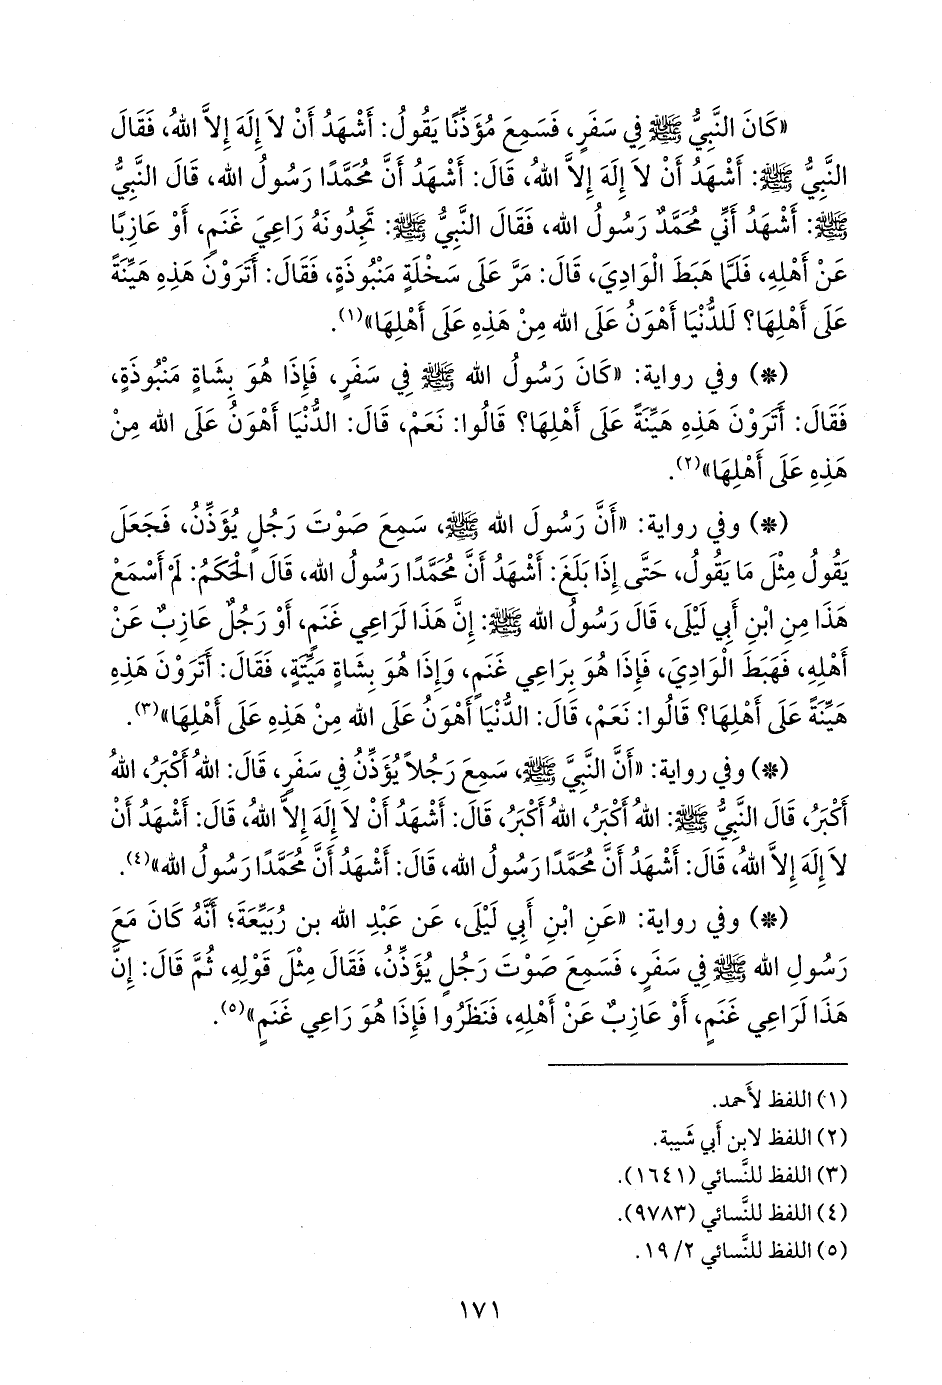 «كَانَ النَّبِيُّ ﷺ فِي سَفَرٍ، فَسَمِعَ مُؤَذِّنًا يَقُولُ: أَشْهَدُ أَنْ لاَ إِلَهَ إِلاَّ اللهُ، فَقَالَ
النَّبِيُّ ﷺ: أَشْهَدُ أَنْ لاَ إِلَهَ إِلاَّ اللهُ، قَالَ: أَشْهَدُ أَنَّ مُحَمَّدًا رَسُولُ الله، قَالَ النَّبِيُّ
ﷺ: أَشْهَدُ أَنِّي مُحَمَّدٌ رَسُولُ الله، فَقَالَ النَّبِيُّ ﷺ: تَجِدُونَهُ رَاعِيَ غَنَمٍ، أَوْ عَازِبًا
عَنْ أَهْلِهِ، فَلَمَّا هَبَطَ الْوَادِيَ، قَالَ: مَرَّ عَلَى سَخْلَةٍ مَنْبُوذَةٍ، فَقَالَ: أَتَرَوْنَ هَذِهِ هَيِّنَةً
عَلَى أَهْلِهَا؟ لَلدُّنْيَا أَهْوَنُ عَلَى الله مِنْ هَذِهِ عَلَى أَهْلِهَا»(١).
(*) وفي رواية: «كَانَ رَسُولُ الله ﷺ فِي سَفَرٍ، فَإِذَا هُوَ بِشَاةٍ مَنْبُوذَةٍ،
فَقَالَ: أَتَرَوْنَ هَذِهِ هَيِّنَةً عَلَى أَهْلِهَا؟ قَالُوا: نَعَمْ، قَالَ: الدُّنْيَا أَهْوَنُ عَلَى الله مِنْ
هَذِهِ عَلَى أَهْلِهَا»(٢).
(*) وفي رواية: «أَنَّ رَسُولَ الله ﷺ، سَمِعَ صَوْتَ رَجُلٍ يُؤَذِّنُ، فَجَعَلَ
يَقُولُ مِثْلَ مَا يَقُولُ، حَتَّى إِذَا بَلَغَ: أَشْهَدُ أَنَّ مُحَمَّدًا رَسُولُ الله، قَالَ الْحَكَمُ: لَمْ أَسْمَعْ
هَذَا مِنِ ابْنِ أَبِي لَيْلَى، قَالَ رَسُولُ الله ﷺ: إِنَّ هَذَا لَرَاعِي غَنَمٍ، أَوْ رَجُلٌ عَازِبٌ عَنْ
أَهْلِهِ، فَهَبَطَ الْوَادِيَ، فَإِذَا هُوَ بِرَاعِي غَنَمٍ، وَإِذَا هُوَ بِشَاةٍ مَيِّتَةٍ، فَقَالَ: أَتَرَوْنَ هَذِهِ
هَيِّنَةً عَلَى أَهْلِهَا؟ قَالُوا: نَعَمْ، قَالَ: الدُّنْيَا أَهْوَنُ عَلَى الله مِنْ هَذِهِ عَلَى أَهْلِهَا»(٣).
(*) وفي رواية: «أَنَّ النَّبِيَّ ﷺ، سَمِعَ رَجُلاً يُؤَذِّنُ فِي سَفَرٍ، قَالَ: اللهُ أَكْبَرُ، اللهُ
أَكْبَرُ، قَالَ النَّبِيُّ ﷺ: اللهُ أَكْبَرُ، اللهُ أَكْبَرُ، قَالَ: أَشْهَدُ أَنْ لاَ إِلَهَ إِلاَّ اللهُ، قَالَ: أَشْهَدُ أَنْ
لاَ إِلَهَ إِلاَّ اللهُ، قَالَ: أَشْهَدُ أَنَّ مُحَمَّدًا رَسُولُ الله، قَالَ: أَشْهَدُ أَنَّ مُحَمَّدًا رَسُولُ الله»(٤).
(*) وفي رواية: «عَنِ ابْنِ أَبِي لَيْلَى، عَن عَبْدِ الله بن رُبَيِّعَةَ؛ أَنَّهُ كَانَ مَعَ
رَسُولِ الله ﷺ فِي سَفَرٍ، فَسَمِعَ صَوْتَ رَجُلٍ يُؤَذِّنُ، فَقَالَ مِثْلَ قَوْلِهِ، ثُمَّ قَالَ: إِنَّ
هَذَا لَرَاعِي غَنَمٍ، أَوْ عَازِبٌ عَنْ أَهْلِهِ، فَنَظَرُوا فَإِذَا هُوَ رَاعِي غَنَمٍ»(٥).
(١) اللفظ لأَحمد.
(٢) اللفظ لابن أَبي شَيبة.
(٣) اللفظ للنَّسائي (١٦٤١).
(٤) اللفظ للنَّسائي (٩٧٨٣).
(٥) اللفظ للنَّسائي ٢/ ١٩.
١٧١